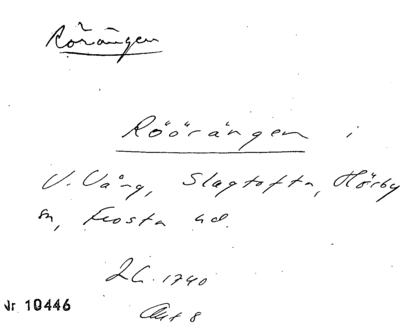 Rörängen
Röörängen i
V. Vång, Slagtofta, Hörby
sn, Frosta hd.
LC. 1740
Akt 8
Nr 10446